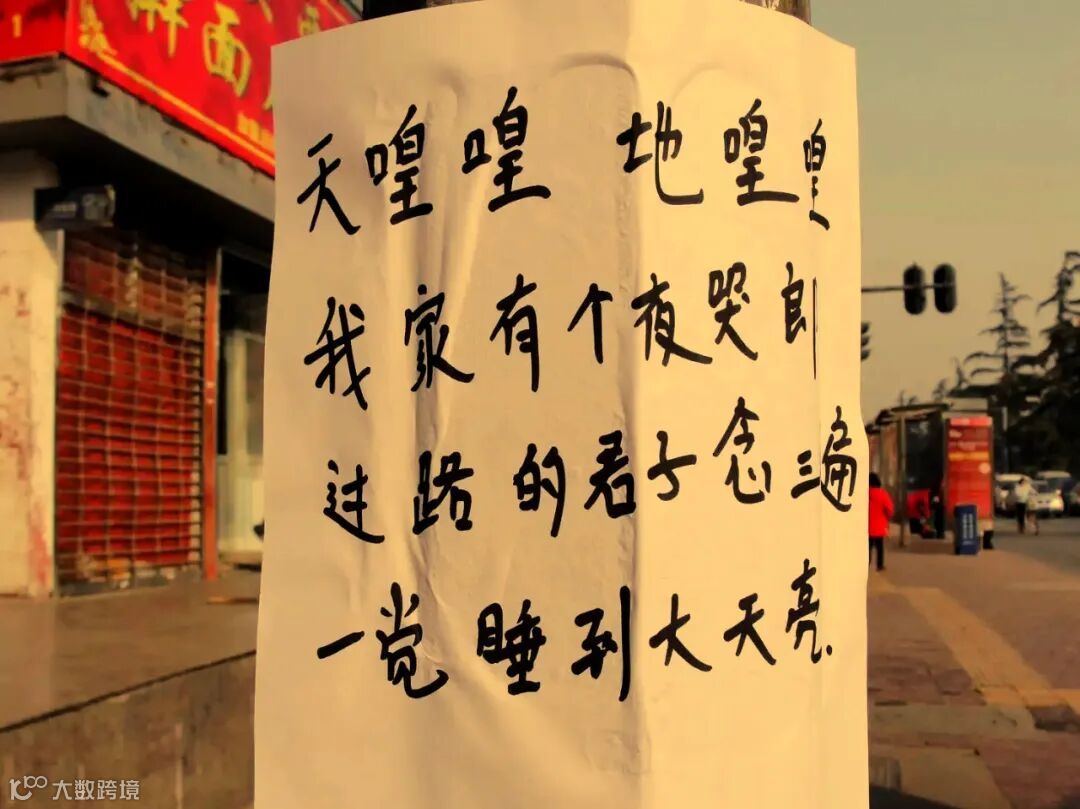 天喤喤 地喤喤
我家有个夜哭郎
过路的君子念三遍
一觉睡到大天亮.
面
1
大数跨境